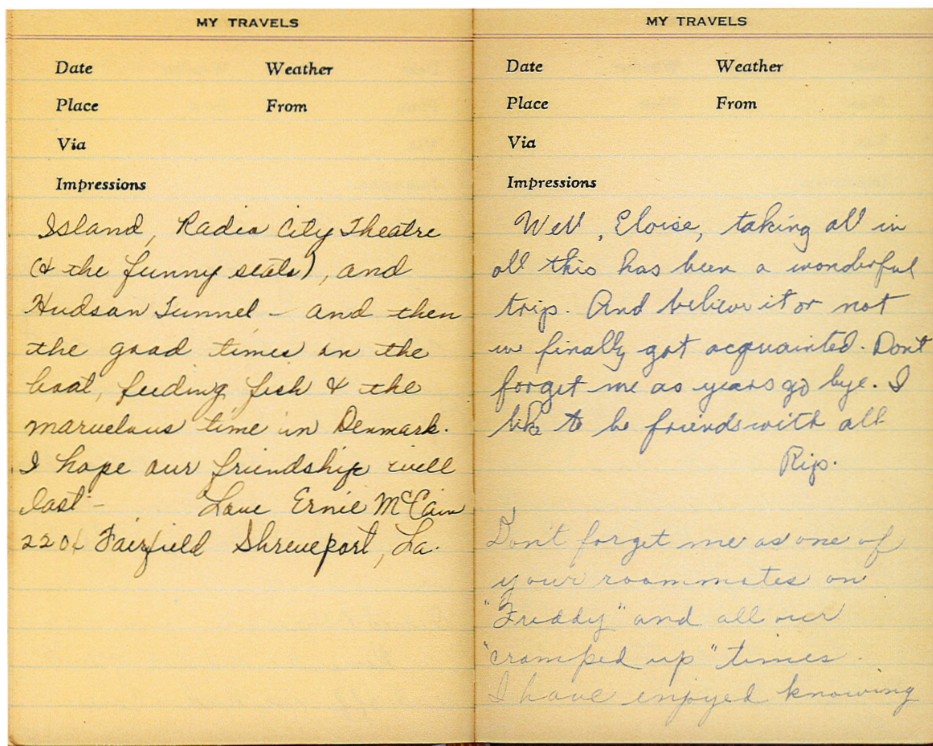 MY TRAVELS
Date Weather
Place From
Via
Impressions
Island, Radio City Theatre
(& the funny seats), and
Hudson Tunnel - and then
the good times on the
boat, feeding fish & the
marvelous time in Denmark.
I hope our friendship will
last - Love Ernie McCain
Fairfield Shreveport, La.
MY TRAVELS
Date Weather
Place From
Via
Impressions
Well, Eloise, taking all in
all this has been a wonderful
trip. And believe it or not
we finally got acquainted. Don't
forget me as years go bye. I
like to be friends with all
Rip.
Don't forget me as one of
your roommates on
"Freddy" and all our
"cramped up" times.
I have enjoyed knowing